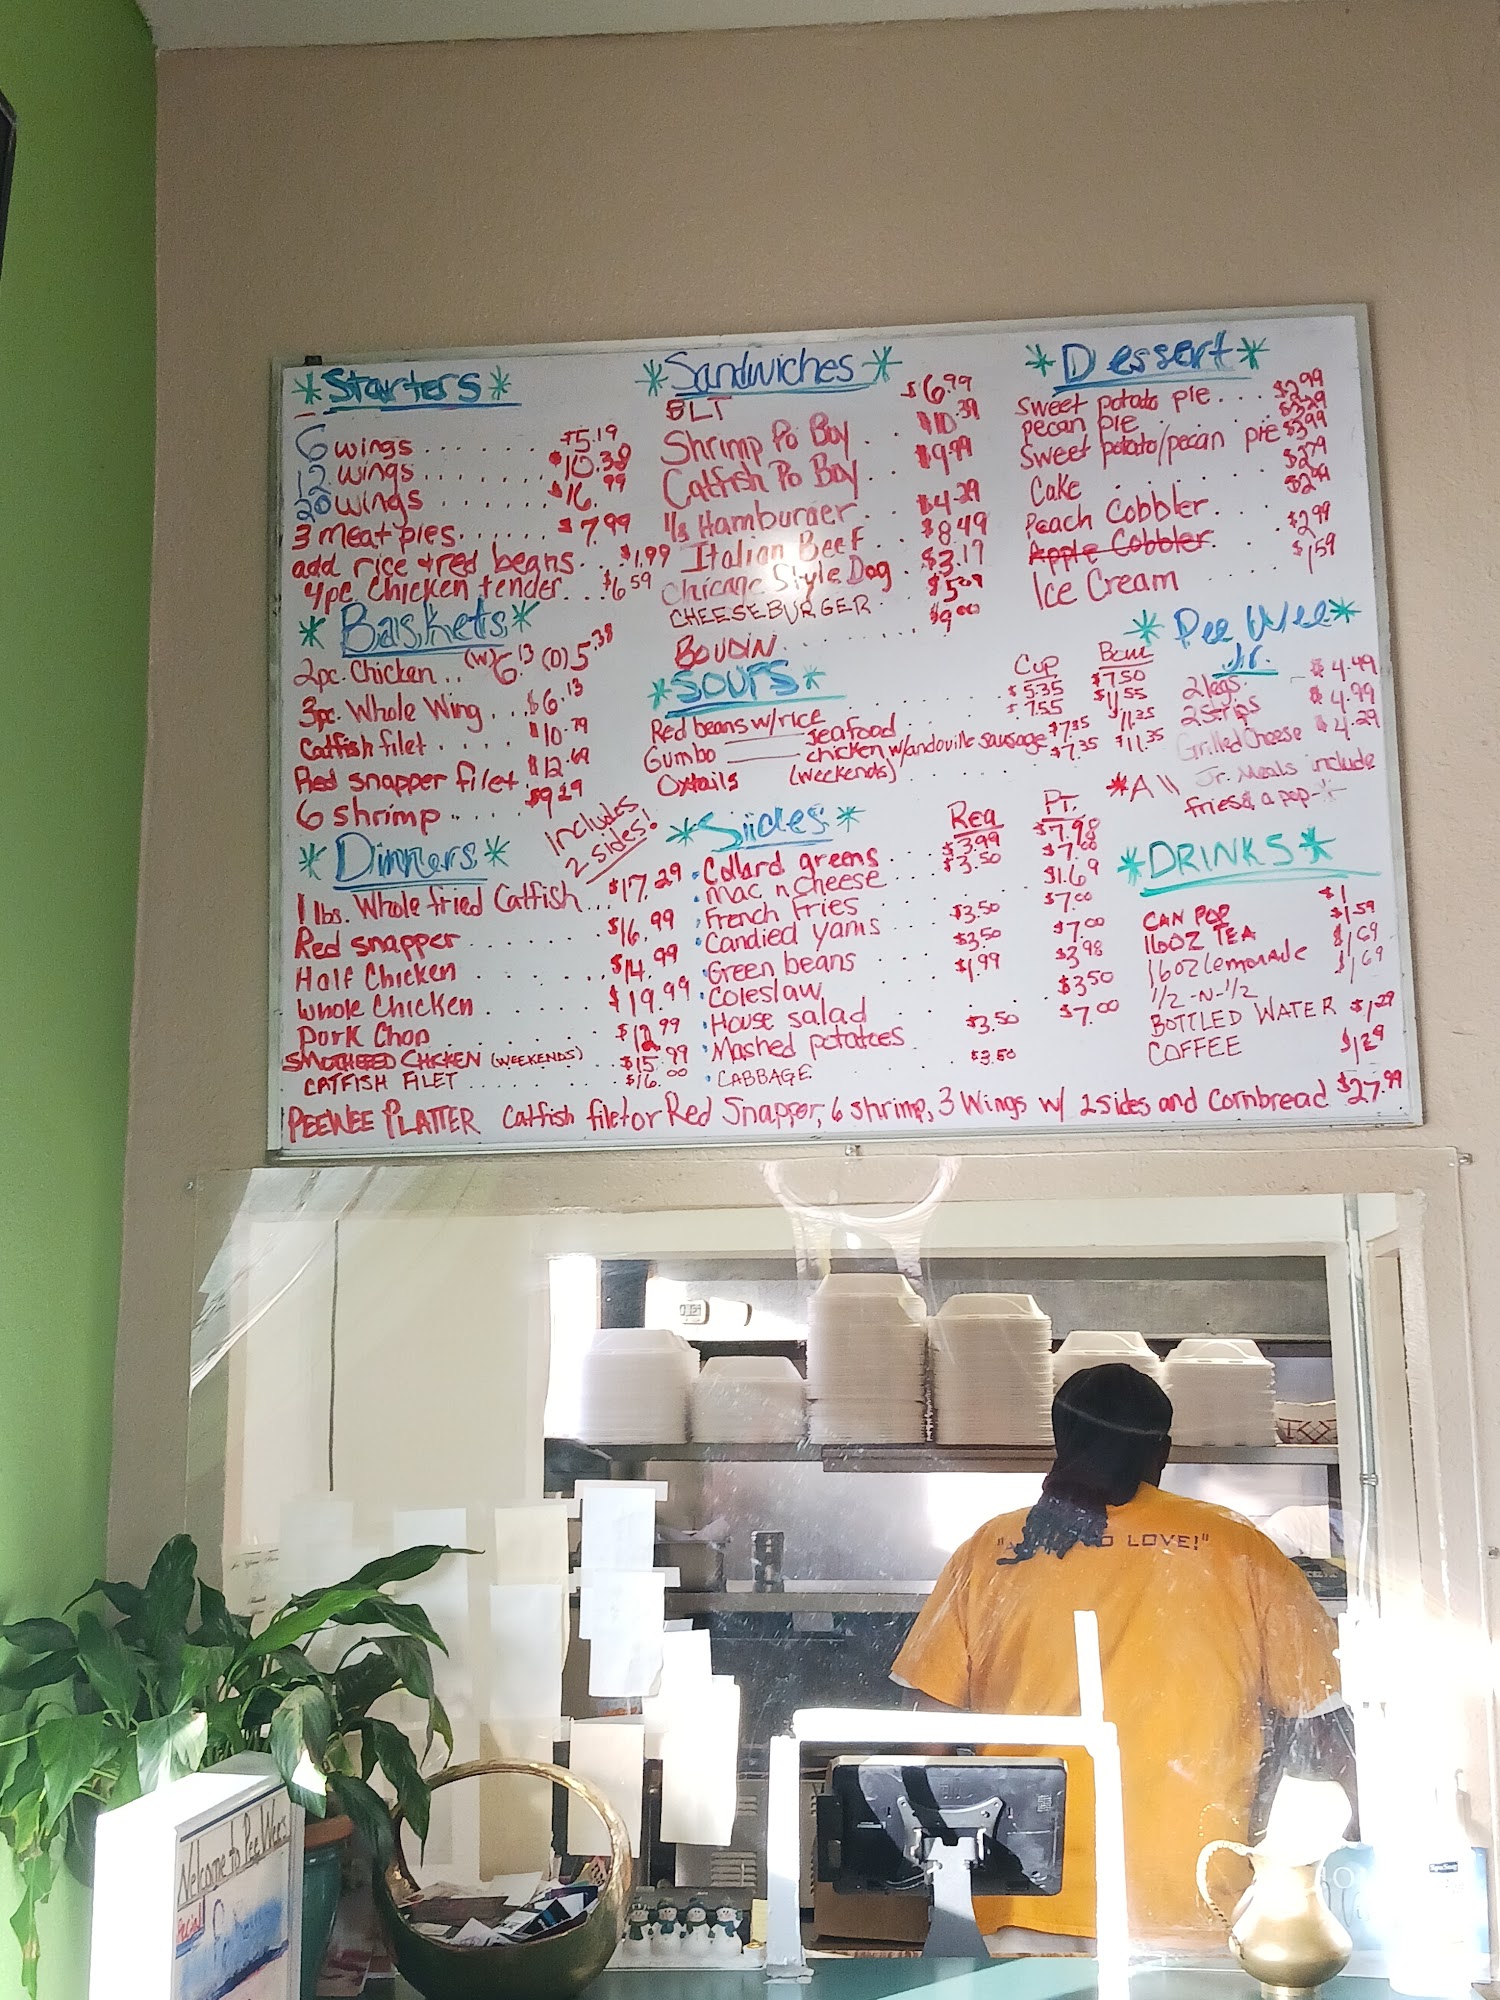 *Starters*
6 wings ....... $5.19
12 wings ....... $10.38
20 wings ....... $16.99
3 meat pies ...... $7.99
add rice & red beans ... $1.99
4pc. Chicken tender ... $6.59
*Baskets*
2pc. Chicken .. (W) 6.13 (D) 5.38
3pc. Whole Wing ... $6.13
Catfish filet .... $10.79
Red snapper filet . $12.69
6 shrimp .... $9.29
*Dinners*
includes 2 sides!
1 lbs. Whole fried Catfish ... $17.29
Red snapper ....... $16.99
Half Chicken ....... $14.99
Whole Chicken ...... $19.99
Pork Chop ....... $12.99
SMOTHERED CHICKEN (WEEKENDS) $15.99
CATFISH FILET ......... $16.00
*Sandwiches*
BLT $6.99
Shrimp Po Boy .. $10.39
Catfish Po Boy . $9.99
1/3 Hamburger .. $4.29
Italian Beef .. $8.49
Chicago Style Dog . $3.19
CHEESEBURGER .
BOUDIN ........ $9.00
*SOUPS* Cup Bowl
Red beans w/rice ....... $5.35 $7.50
Gumbo — seafood $7.55 $11.55
chicken w/andoville sausage $7.35 $11.35
Oxtails (weekends) ...... $7.35 $11.35
*Sides* Reg PT.
• Collard greens ... $3.99 $7.98
• Mac n cheese ... $3.50 $7.00
• French Fries ... $1.69
• Candied yams ... $3.50 $7.00
• Green beans ... $3.50 $7.00
• Coleslaw ... $1.99 $3.98
• House salad .. $3.50
• Mashed potatoes ... $3.50 $7.00
• CABBAGE ... $3.50
*Dessert*
Sweet potato pie ... $2.99
pecan pie ... $3.29
Sweet potato/pecan pie $3.99
Cake ...... $2.79
Peach Cobbler ... $2.99
Apple Cobbler . $2.99
Ice Cream ..... $1.59
*Pee Wee*
Jr.
2 legs - $4.49
2 strips $4.99
Grilled Cheese $4.29
*All Jr. Meals include
fries & a pop*
*DRINKS*
CAN POP $1
16OZ TEA $1.59
16oz Lemonade $1.69
1/2-N-1/2 $1.69
BOTTLED WATER $1.29
COFFEE $1.29
PEEWEE PLATTER Catfish filet or Red Snapper, 6 shrimp, 3 Wings w/ 2 Sides and Cornbread $27.99
LOVE!"
Welcome to Pee Wee's